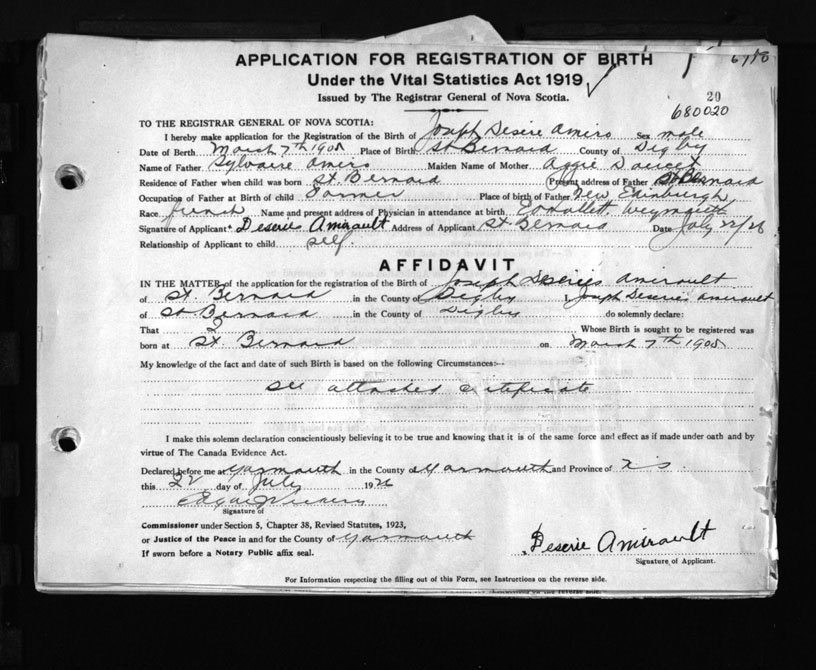 APPLICATION FOR REGISTRATION OF BIRTH
Under the Vital Statistics Act 1919
Issued by The Registrar General of Nova Scotia.
20
680020
TO THE REGISTRAR GENERAL OF NOVA SCOTIA:
I hereby make application for the Registration of the Birth of Joseph Desere Amiro Sex male
Date of Birth March 7th 1905 Place of Birth St Bernard County of Digby
Name of Father Sylvaire Amiro Maiden Name of Mother Aggie Doucet
Residence of Father when child was born St. Bernard Present address of Father St Bernard
Occupation of Father at Birth of child Farmer Place of birth of Father New Edinburgh
Race french Name and present address of Physician in attendance at birth Weymouth
Signature of Applicant Deserie Amirault Address of Applicant St Bernard Date July 22/26
Relationship of Applicant to child self.
AFFIDAVIT
IN THE MATTER of the application for the registration of the Birth of Joseph Deseries Amirault
of St. Bernard in the County of Digby Joseph Deseries Amirault
of St Bernard in the County of Digby do solemnly declare:
That I Whose Birth is sought to be registered was
born at St Bernard on March 7th 1905
My knowledge of the fact and date of such Birth is based on the following Circumstances:—
see attached certificate
I make this solemn declaration conscientiously believing it to be true and knowing that it is of the same force and effect as if made under oath and by
virtue of The Canada Evidence Act.
Declared before me at Yarmouth in the County of Yarmouth and Province of N S
this 22 day of July 1926
Signature of
Commissioner under Section 5, Chapter 38, Revised Statutes, 1923,
or Justice of the Peace in and for the County of Yarmouth
If sworn before a Notary Public affix seal.
Deserie Amirault
Signature of Applicant.
For Information respecting the filling out of this Form, see Instructions on the reverse side.